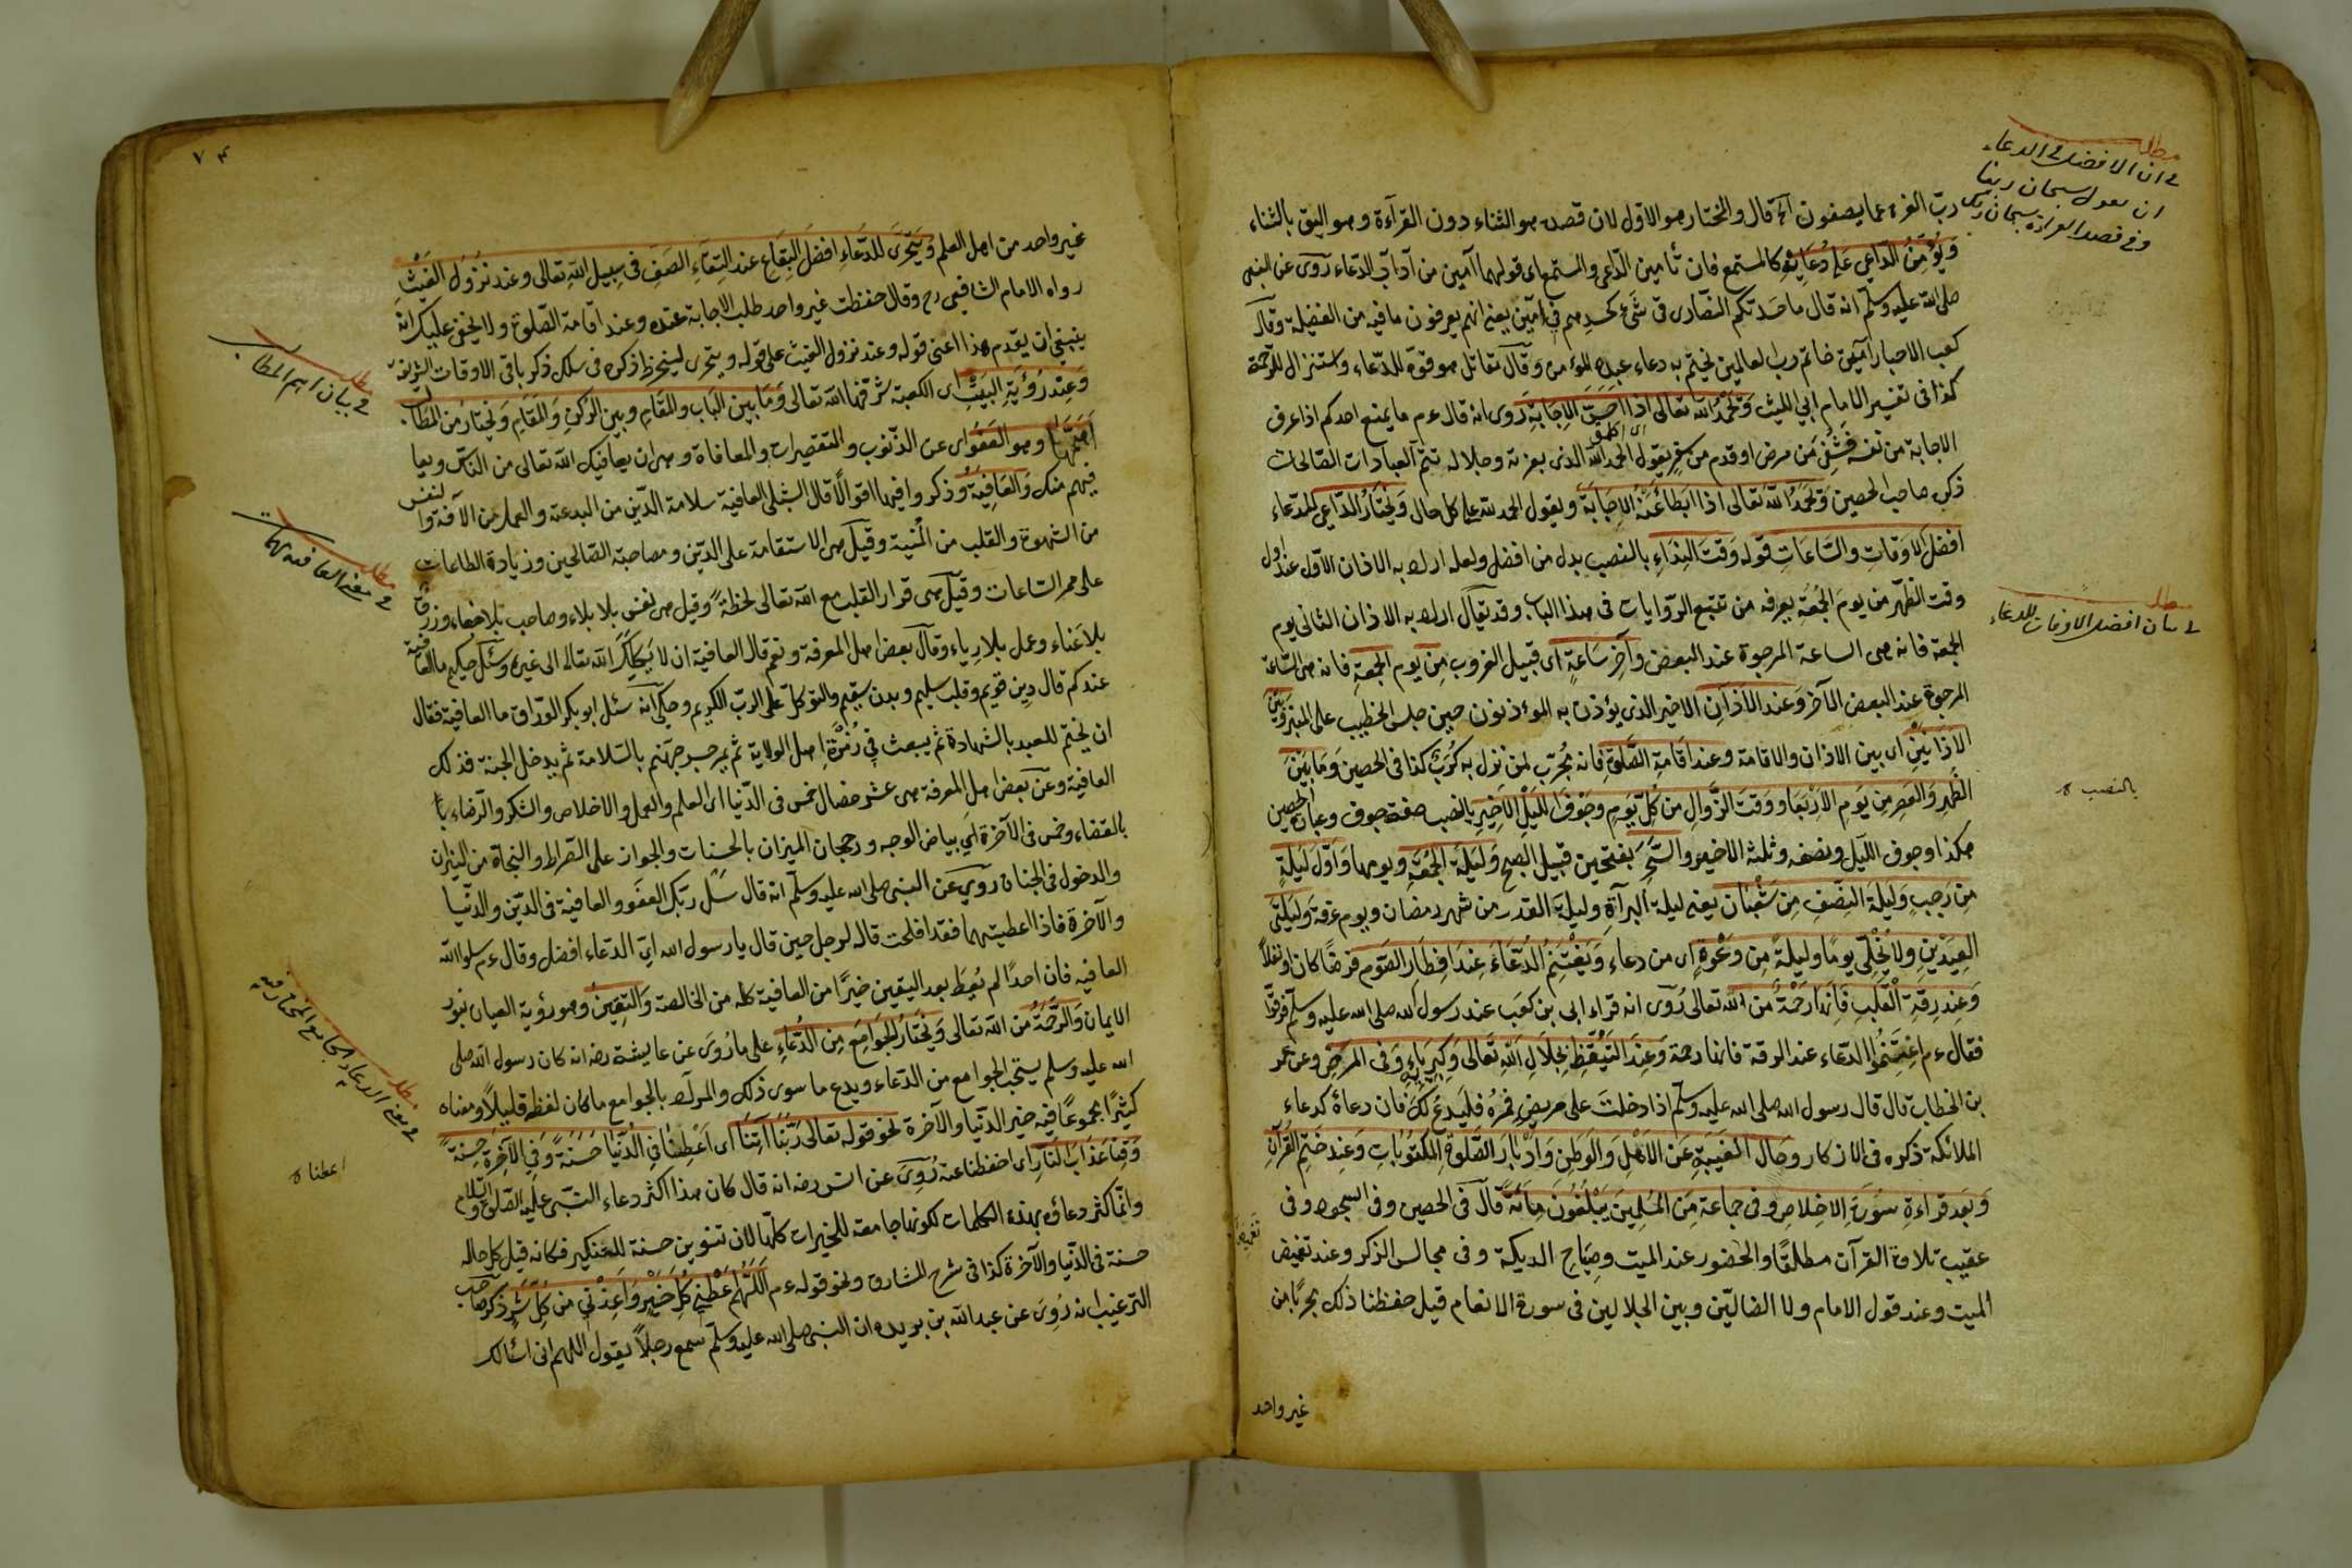 مطلب
في ان الافضل في الدعاء
ان يقول سبحان ربنا
وفي قصد القراءة سبحان ربك
رب العزة عما يصفون آه قال والمختار هو الاول لان قصده هو الثناء دون القرآءة وهو اليق بالثناء
ويؤمن الداعي على دعائه كالمستمع فان تأمين الداعي والمستمع اي قولهما آمين من آداب الدعاء روى عن النبي
صلى الله عليه وسلم انه قال ما حسدتكم النصارى في شيء كحسدهم في آمين يعني انهم يعرفون ما فيه من الفضيلة وقال
كعب الاحبار آمين خاتم رب العالمين يختم به دعاء عبده المؤمن وقال مقاتل هو قوة للدعاء واستنزال للرحمة
كذا في تفسير الامام ابي الليث وتحمد الله تعالى اذا احس الاجابة روى انه قال عم ما يمنع احدكم اذا عرف
الاجابة من نفسه فشفي من مرض او قدم من سفر يقول الحمد لله الذي بعزته وجلاله تتم الصالحات
ذكره صاحب الحصين وتحمد الله تعالى اذا ابطأ عنه الاجابة ويقول الحمد لله على كل حال ويختار الداعي للدعاء
افضل الاوقات والساعات قوله وقت النداء بالنصب بدل من افضل ولعله اراد به الاذان الاول عند اول
مطلب
في بيان افضل الاوقات للدعاء
وقت الظهر من يوم الجمعة يعرفه من تتبع الروايات في هذا الباب وقد يقال اراد به الاذان الثاني يوم
الجمعة فانه هي الساعة المرجوة عند البعض وآخر ساعة اي قبيل الغروب من يوم الجمعة فانه هي الساعة
المرجوة عند البعض الآخر وعند الاذان الاخير الذي يؤذن به المؤذنون حين جلس الخطيب على المنبر وبين
الاذانين اي بين الاذان والاقامة وعند اقامة الصلوة فانه مجرب لمن نزل به كرب كذا في الحصين وما بين
الظهر والعصر من يوم الاربعا ووقت الزوال من كل يوم وجوف الليل الاخير بالنصب صفة جوف وعبارة الحصين
بالنصب
هكذا وجوف الليل ونصفه وثلثه الاخير والسحر بفتحين قبيل الصبح وليلة الجمعة ويومها واول ليلة
من رجب وليلة النصف من شعبان يعني ليلة البرآة وليلة القدر من شهر رمضان ويوم عرفة وليلتي
العيدين ولا يخلي يوما وليلة من دعوة اي من دعاء ويغتنم الدعاء عند افطار الصوم فرضا كان او نفلا
وعند رقة القلب فانها رحمة من الله تعالى روى انه قراء ابي بن كعب عند رسول الله صلى الله عليه وسلم فرقوا
فقال عم اغتنموا الدعاء عند الرقة فانها رحمة وعند التيقظ بجلال الله تعالى وكبريائه وفي المرض وعن عمر
بن الخطاب قال قال رسول الله صلى الله عليه وسلم اذا دخلت على مريض فمره فليدع لك فان دعاؤه كدعاء
الملائكة ذكره في الاذكار وحال الغيبة عن الاهل والوطن وادبار الصلوة المكتوبات وعند ختم القرآن
وبعد قراءة سورة الاخلاص وفي جماعة من المسلمين يبلغون مائة قال في الحصين وفي السجود وفي
عقيب تلاوة القرآن مطلقا والحضور عند الميت وصياح الديكة وفي مجالس الذكر وعند تغميض
تغميض
الميت وعند قول الامام ولا الضالين وبين الجلالين في سورة الانعام قيل حفظنا ذلك مجربا من
غير واحد
٧٤
غير واحد من اهل العلم ويتحرى للدعاء افضل البقاع عند التقاء الصف في سبيل الله تعالى وعند نزول الغيث
رواه الامام الشافعي رح وقال حفظت غير واحد طلب الاجابة عنده وعند اقامة الصلوة ولا يخفى عليك انه
ينبغي ان يقدم هذا اعني قوله وعند نزول الغيث على قوله ويتحرى لينخرط ذكره في سلك ذكر باقي الاوقات الشريفة
مطلب
في بيان اهم المطالب
وعند رؤية البيت اي الكعبة شرفها الله تعالى وما بين الباب والمقام وبين الركن والمقام ويختار من المطالب
اهمها وهو العفو اي عن الذنوب والتقصيرات والمعافاة وهي ان يعافيك الله تعالى من الناس ويعا
فيهم منك والعافية وذكروا فيها اقوالا قال الشبلي العافية سلامة الدين من البدعة والعمل من الآفة والنفس
من الشهوة والقلب من المنية وقيل هي الاستقامة على الدين ومصاحبة الصالحين وزيادة الطاعات
مطلب
في معنى العافية
على ممر الساعات وقيل هي قرار القلب مع الله تعالى لحظة وقيل هي نفس بلا بلاء وصاحب بلا جفاء ورزق
بلا عناء وعمل بلا رياء وقال بعض اهل المعرفة ونعم قال العافية ان لا يكلك الله تعالى الى غيره وسئل حكيم ما العافية
عندكم قال دين قويم وقلب سليم وبدن سقيم والتوكل على الرب الكريم وحكي انه سئل ابو بكر الوراق ما العافية فقال
ان يختم للعبد بالشهادة ثم يبعث في زمرة اهل الولاية ثم يمر جسر جهنم بالسلامة ثم يدخل الجنة فذلك
العافية وعن بعض اهل المعرفة هي عشر خصال خمس في الدنيا اي العلم والعمل والاخلاص والشكر والرضاء با
بالقضاء وخمس في الآخرة اي بياض الوجه ورجحان الميزان بالحسنات والجواز على الصراط والنجاة من النيران
والدخول في الجنان روى عن النبي صلى الله عليه وسلم انه قال سل ربك العفو والعافية في الدين والدنيا
والآخرة فاذا اعطيتهما فقد افلحت قاله لرجل حين قال يا رسول الله اي الدعاء افضل وقال عم سلوا الله
العافيه فان احدا لم يعط بعد اليقين خيرا من العافية كله من الخالصة واليقين وهو رؤية العيان بنور
الايمان والرحمة من الله تعالى ويختار الجوامع من الدعاء على ما روى عن عايشة رضه انه كان رسول الله صلى
مطلب
في معنى الدعاء الجامع المختار فيه
الله عليه وسلم يستحب الجوامع من الدعاء ويدع ما سوى ذلك والمراد بالجوامع ما كان لفظه قليلا ومعناه
كثيرا مجموعا فيه خير الدنيا والآخرة نحو قوله تعالى ربنا آتنا اي اعطنا في الدنيا حسنة وفي الآخرة حسنة
اعطنا
وقنا عذاب النار اي احفظنا عنه روى عن انس رضه انه قال كان هذا اكثر دعاء النبي عليه الصلوة والسلام
وانما كثر دعاؤه بهذه الكلمات لكونها جامعة للخيرات كلها لان تنوين حسنة للتنكير فكانه قيل كل حالة
حسنة في الدنيا والآخرة كذا في شرح المشارق ونحو قوله عم اللهم اعطني كل خير واعذني من كل شر ذكر صاحب
الترغيب انه روى عن عبد الله بن بريده ان النبي صلى الله عليه وسلم سمع رجلا يقول اللهم اني اسئالك